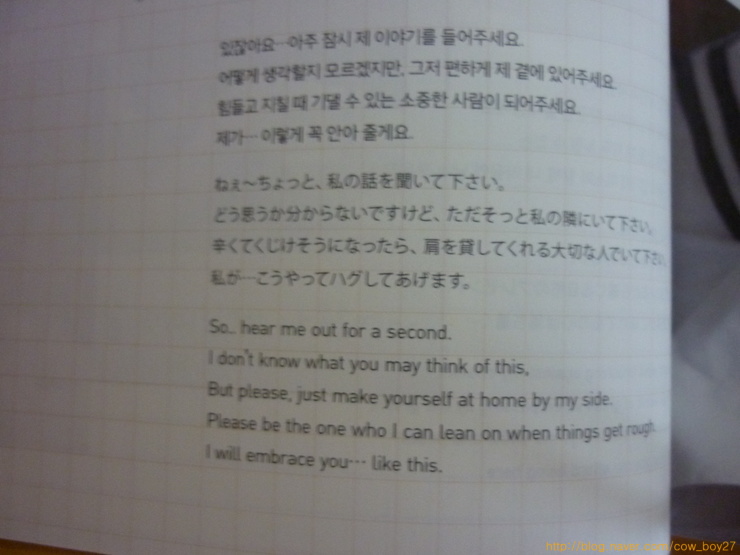 있잖아요…아주 잠시 제 이야기를 들어주세요.
어떻게 생각할지 모르겠지만, 그저 편하게 제 곁에 있어주세요.
힘들고 지칠 때 기댈 수 있는 소중한 사람이 되어주세요.
제가… 이렇게 꼭 안아 줄게요.
ねぇ～ちょっと、私の話を聞いて下さい。
どう思うか分からないですけど、ただそっと私の隣にいて下さい。
辛くてくじけそうになったら、肩を貸してくれる大切な人でいて下さい。
私が…こうやってハグしてあげます。
So.. hear me out for a second.
I don't know what you may think of this,
But please, just make yourself at home by my side.
Please be the one who I can lean on when things get rough.
I will embrace you… like this.
http://blog.naver.com/cow_boy27